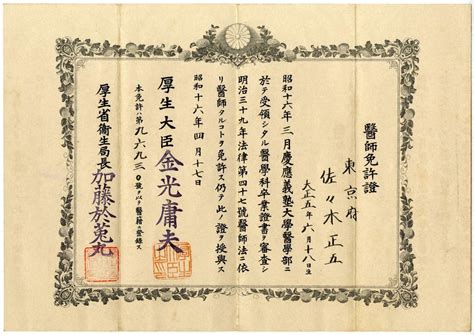 醫師免許證
東京府
佐々木正五
大正五年六月十八日生
昭和十六年三月慶應義塾大學醫學部ニ
於テ受領シタル醫學科卒業證書ヲ審査シ
明治三十九年法律第四十七號醫師法ニ依
リ醫師タルコトヲ免許ス仍テ此ノ證ヲ授與ス
昭和十六年四月十七日
厚生大臣金光庸夫
本免許ハ第九六九三〇號ヲ以テ醫籍ニ登錄ス
厚生省衞生局長加藤於菟丸